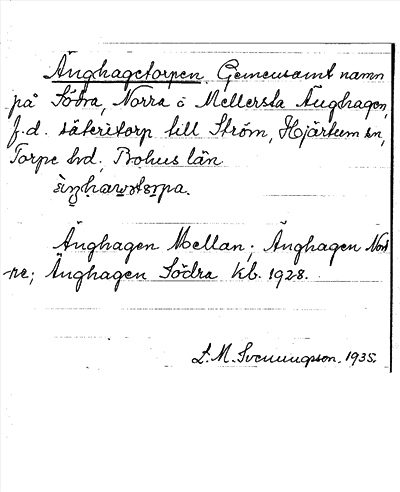 Änghagetorpen. Gemensamt namn
på Södra, Norra o Mellersta Änghagen,
f.d. säteritorp till Ström, Hjärtum sn,
Torpe hd, Bohus län

Änghagen Mellan; Änghagen Nor-
re; Änghagen Södra kb. 1928.
S. M. Svenungsson. 1935.